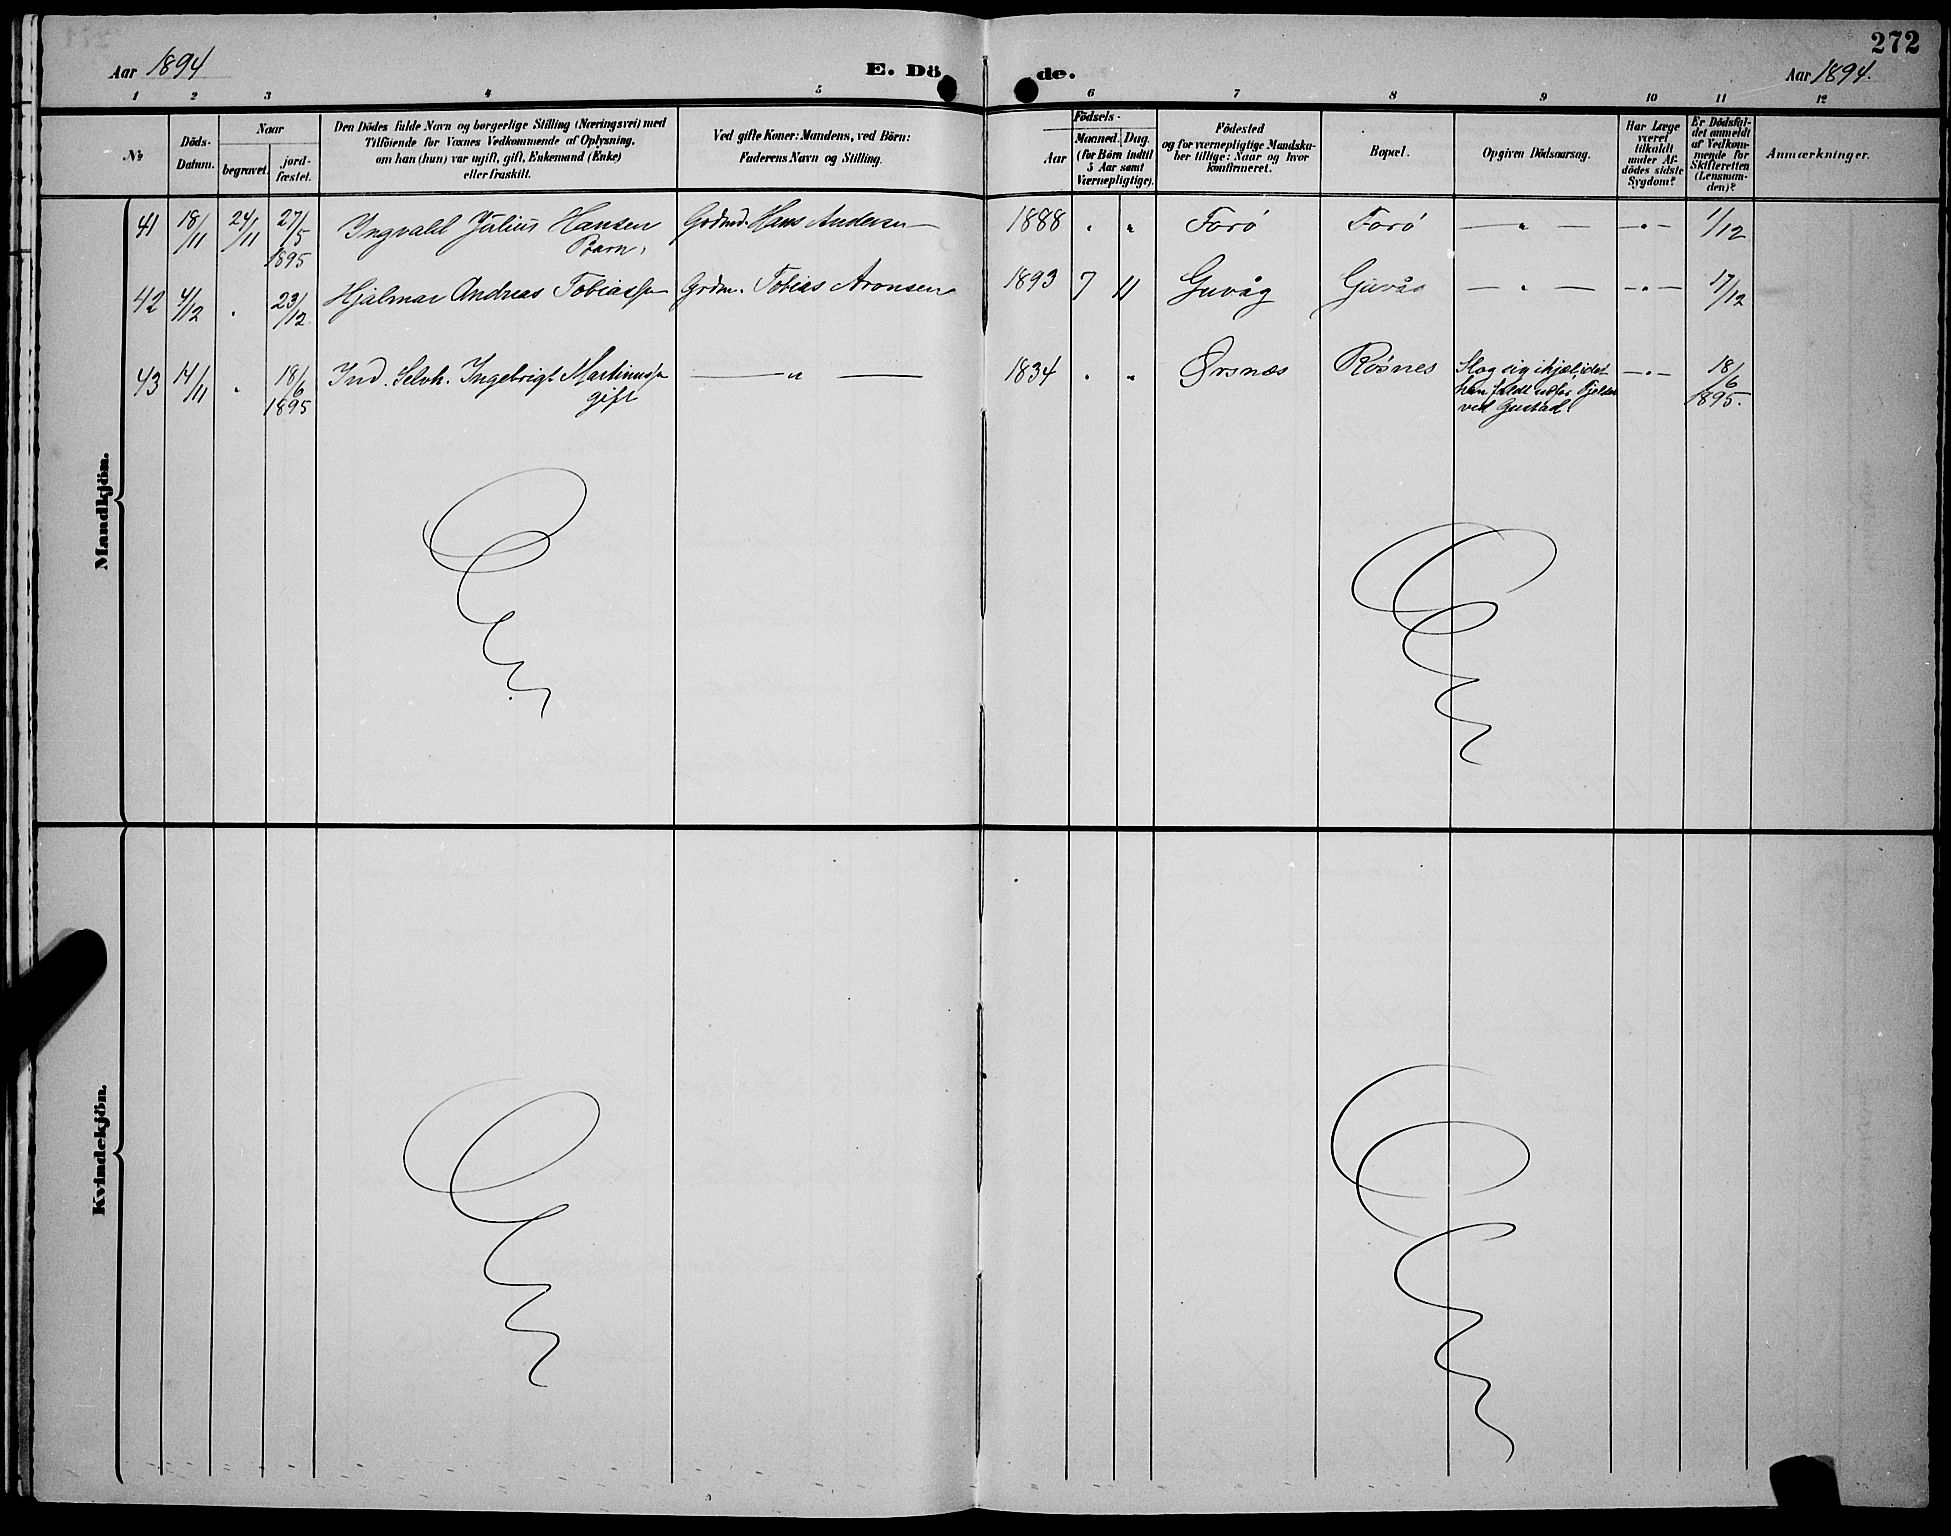 272
Aar 1894
E. Dö de.
Aar 1894.
1 2 3 4 5 6 7 8 9 10 11 12
No
Döds-
Datum.
Naar
begravet.
jord-
fæstet.
Den Dödes fulde Navn og borgerlige Stilling (Næringsvei) med
Tilföiende for Voxnes Vedkommende af Oplysning,
om han (hun) var ugift, gift, Enkemand (Enke)
eller fraskilt.
Ved gifte Koner: Mandens, ved Börn:
Faderens Navn og Stilling.
Födsels-
Aar
Maaned.
Dag.
(for Børn indtil
5 Aar samt
Værnepligtige).
Födested
og for værnepligtige Mandska-
ber tillige: Naar og hvor
konfirmeret.
Bopæl.
Opgiven Dödsaarsag.
Har Læge
været
tilkaldt
under Af-
dödes sidste
Sygdom?
Er Dödsfal-
det anmeldt
af Vedkom-
mende for
Skifteretten
(Lensman-
den)?
Anmærkninger.
Mandkjön.
41 18/11 24/11 27/5 1895 Ingvald Julius Hansen Grdmd. Hans Andersen 1888 " " Forö Forö — " — — " — 1/12
Barn,
42 4/12 " 23/12 Hjalmar Andreas Tobiassen Grdm. Tobias Aronsen 1893 7 11 Guvåg Guvåg — " — — " — 17/12
43 14/11 " 18/6 1895 Ind. Selvh. Ingebrigt Martinussen — " — 1834 " " Ørsnæs Rösnes Slog sig ihjel, idet — " — 18/6 1895.
gift
han faldt udfor Fjeldet
ved Gustad.
Kvindekjön.